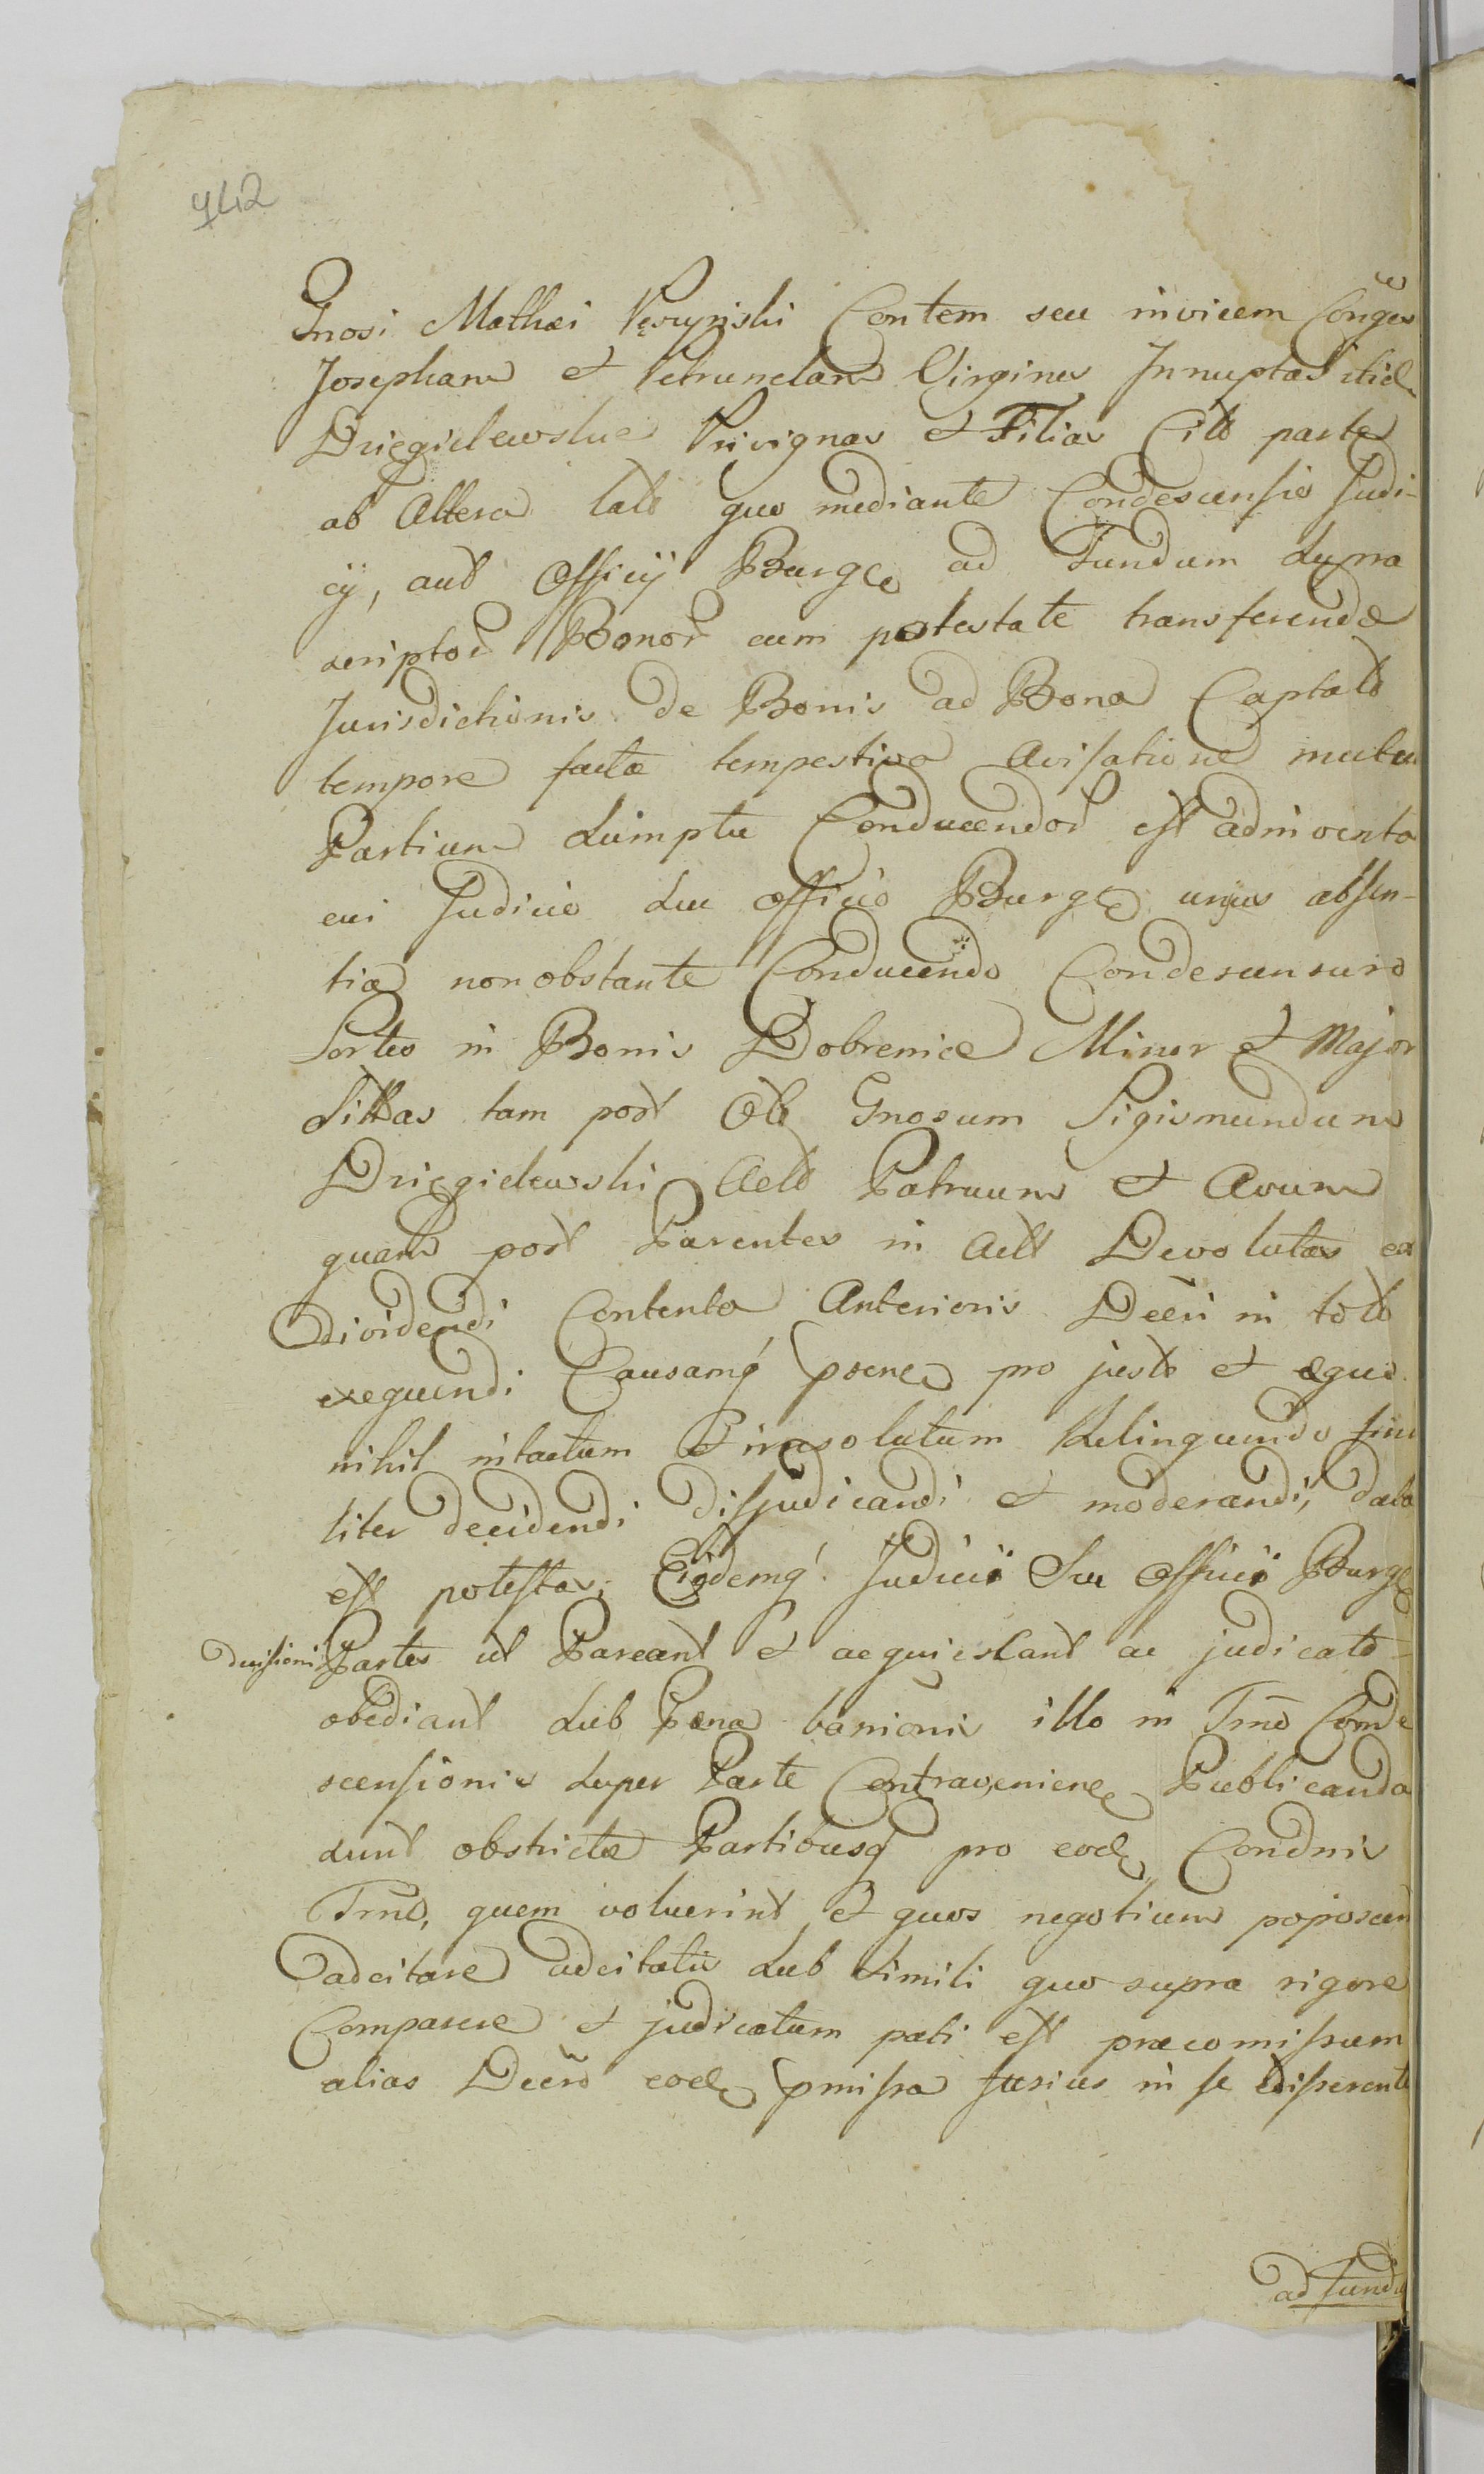 942
Gnosi Mathæi Pęczyński Contem seu invicem Conges
Josepham et Petrunelam Virgines Innuptas itid
Dzięgielewskie Privignas et Filias Citt parte
ab Altera latt quo mediante Condescensio Judi-
cÿ, aut Officÿ Burg ad Fundum supra
scriptor Bonor cum potestate transferendæ
Jurisdictionis de Bonis ad Bona Captato
tempore facta tempestiva Avisatione mutuo
Partium sumptu Conducendor est adinventa
cui Judicio seu Officio Burg unius absen-
tia non obstante Conducendo Condescensuro
Sortes in Bonis Dobrenice Minor et Major
Sittas tam post Ol Gnosum Sigismundum
Dzięgielewski Actt Patruum et Avum
quam post Parentes in Actt Devolutas ex
Dividendi Contenta Anterioris Decri in toto
exequendi Causamq psene pro justo et æquo
nihil intactum et irresolutum Relinquendo fina
liter decidendi disjudicandi et moderandi, data
est potestas. Eidemq Judicii Seu Officii Burg
decisioni Partes ut Pareant et acquiescant ac judicato
obediant sub Pæna banionis illo in Trno Conde
scensionis super Parte Contravenien Publicanda
sunt obstrictæ Partibusq pro eod Condnis
Trno, quem voluerint et quos negotium poposcerit
adcitare adcitatis sub simili quo supra rigore
Comparere et judicatum pati est præcomissum
alias Decro eod pmissa fusius in se edisserente
ad fundu